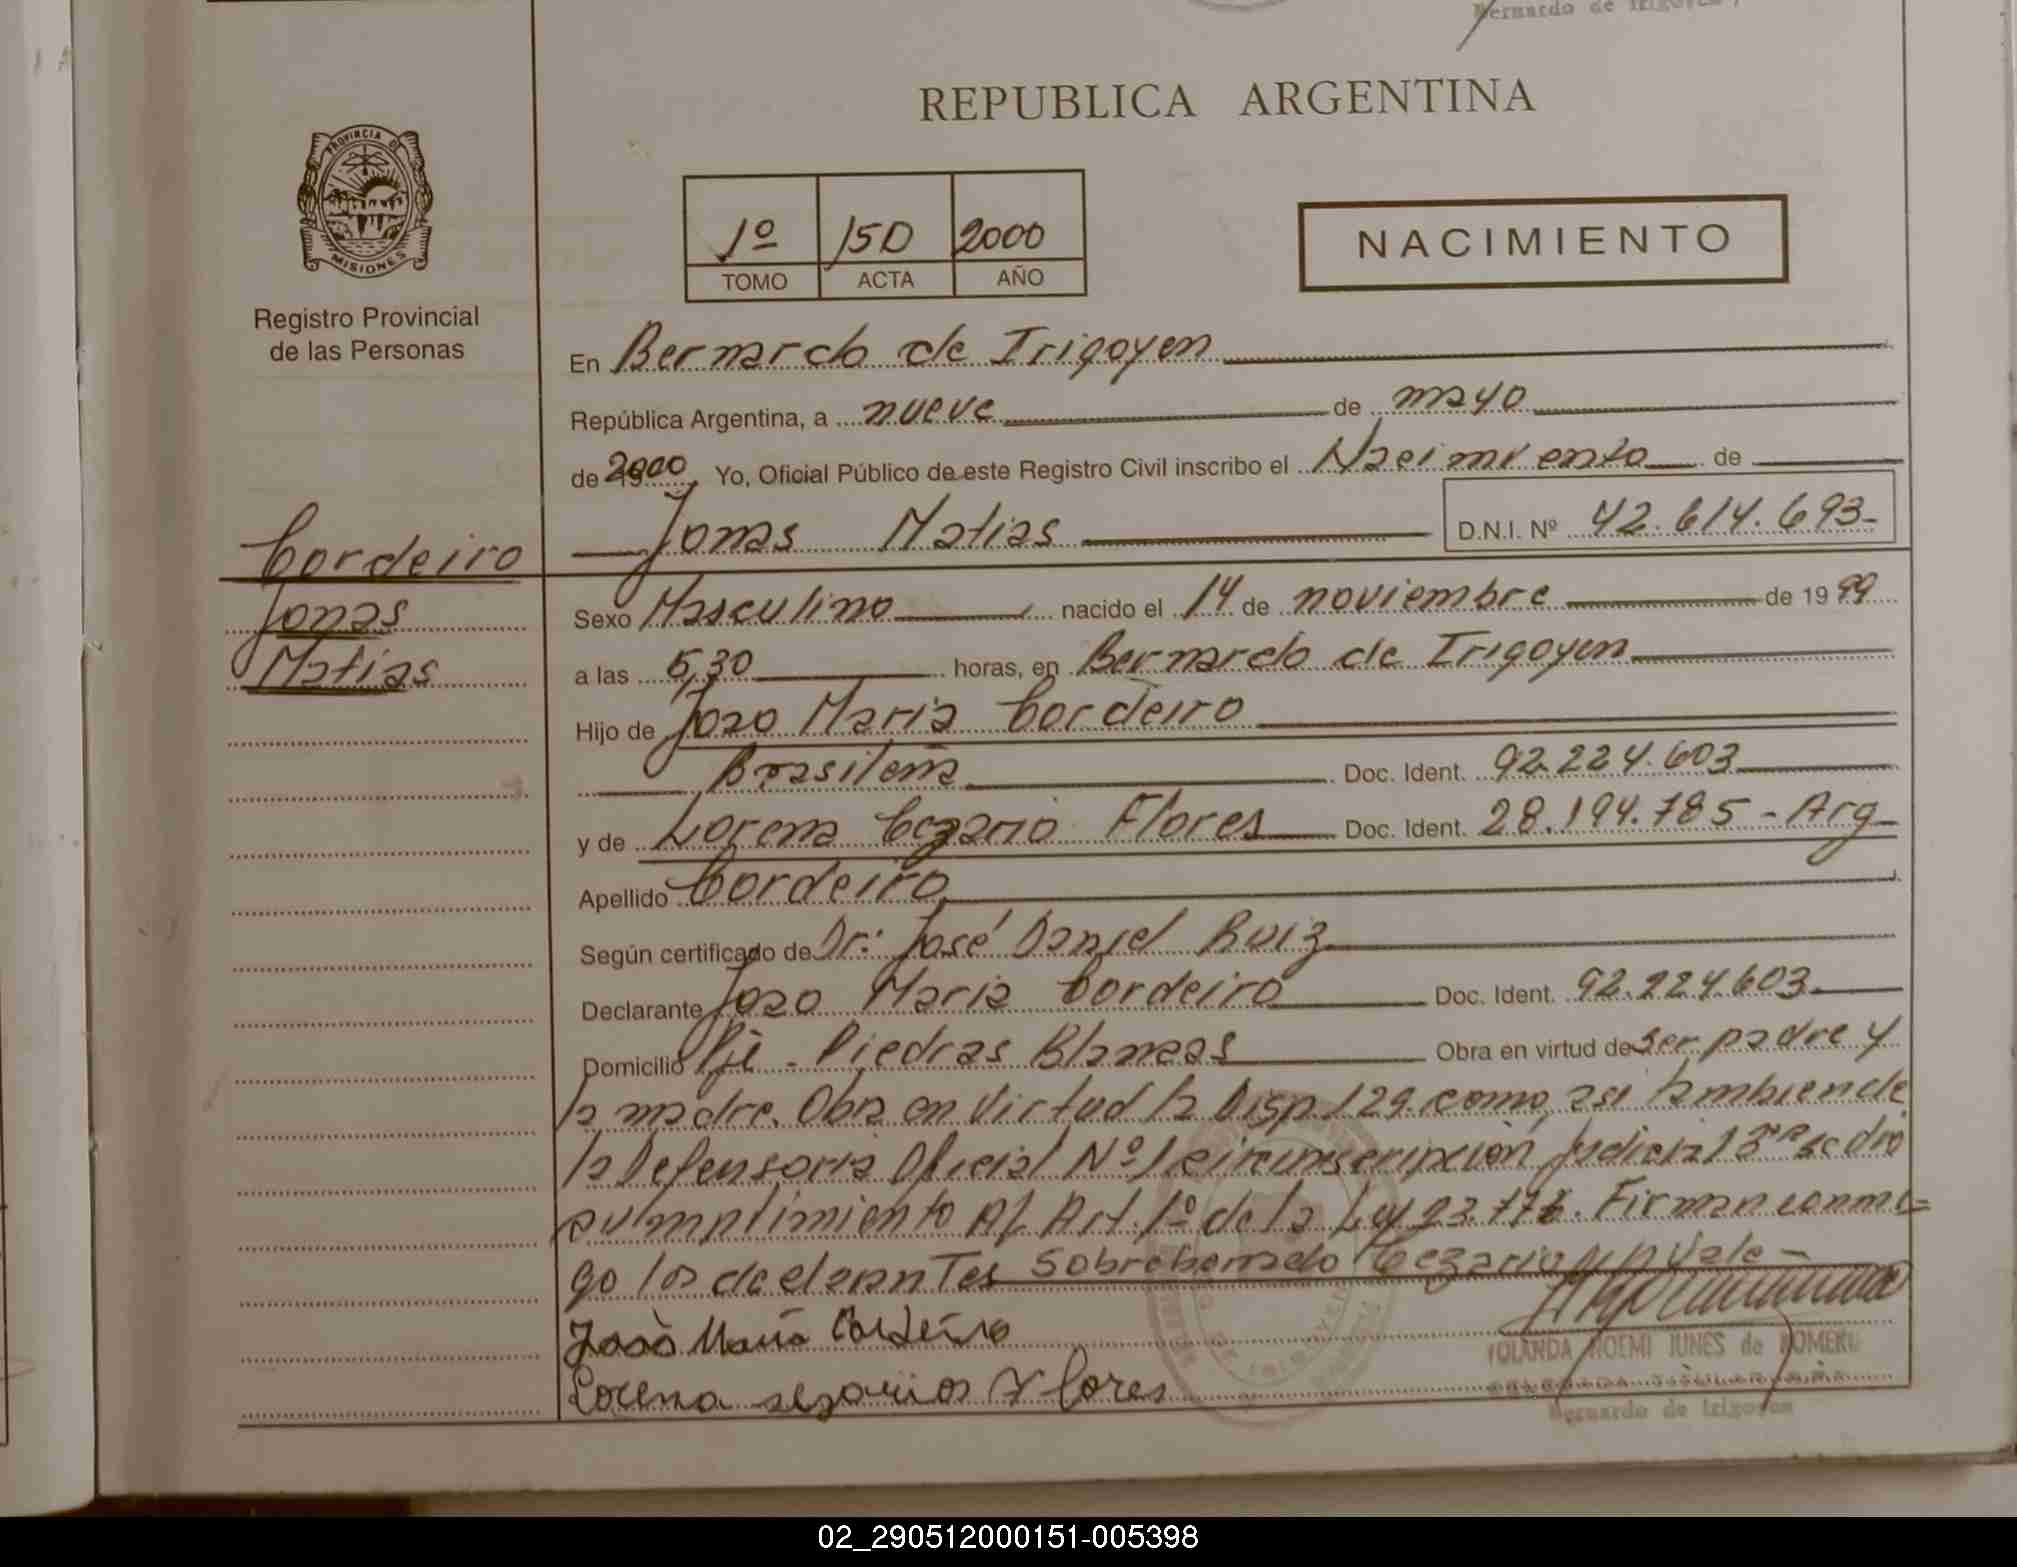 Bernardo de Irigoyen
REPUBLICA ARGENTINA
PROVINCIA DE
MISIONES
1º 150 2000
TOMO ACTA AÑO
NACIMIENTO
Registro Provincial
de las Personas
En Bernardo de Irigoyen
República Argentina, a nueve de mayo
de 2000, Yo, Oficial Público de este Registro Civil inscribo el Nacimiento de
Jonas Matias D.N.I. Nº 42.614.693-
Cordeiro
Jonas
Matias
Sexo Masculino nacido el 14 de noviembre de 1999
a las 5,30 horas, en Bernardo de Irigoyen
Hijo de Joao Maria Cordeiro
Brasileña Doc. Ident. 92.224.603
y de Lorena Cezario Flores Doc. Ident. 28.194.785 - Arg
Apellido Cordeiro
Según certificado de Dr: José Daniel Ruiz
Declarante Joao Maria Cordeiro Doc. Ident. 92.224.603
Domicilio Pje - Piedras Blancas Obra en virtud de ser padre y
la madre. Obra en virtud la Disp. 129. como asi tambien de
la Defensoria Oficial Nº 1 circunscripción Judicial 3ra se dio
cumplimiento Al Art. 1º de la Ley 23.776. Firman conmi=
go los declarantes Sobreborrado Cezario Vale -
Joaò Maria Cordeiro
Lorena sezarios Flores
YOLANDA NOEMI JUNES de ROMERO
Bernardo de Irigoyen
02_290512000151-005398